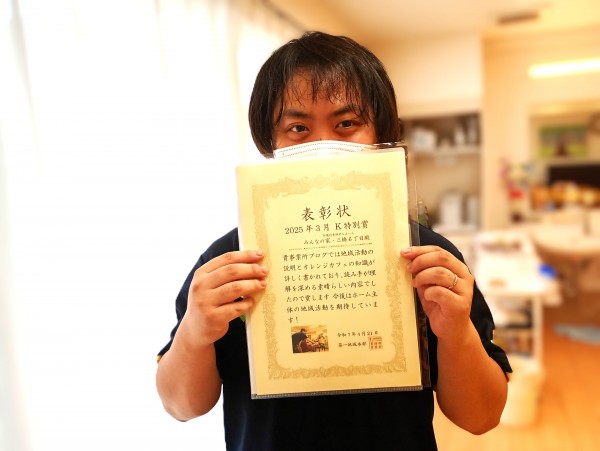 表彰状
2025年3月 K特別賞
みんなの家・三橋6丁目殿
貴事業所ブログでは地域活動の
説明とオレンジカフェの知識が
詳しく書かれており、読み手が理
解を深める素晴らしい内容でし
たので賞します 今後はホーム主
体の地域活動を期待していま
す!
令和7年4月
第一地域本部